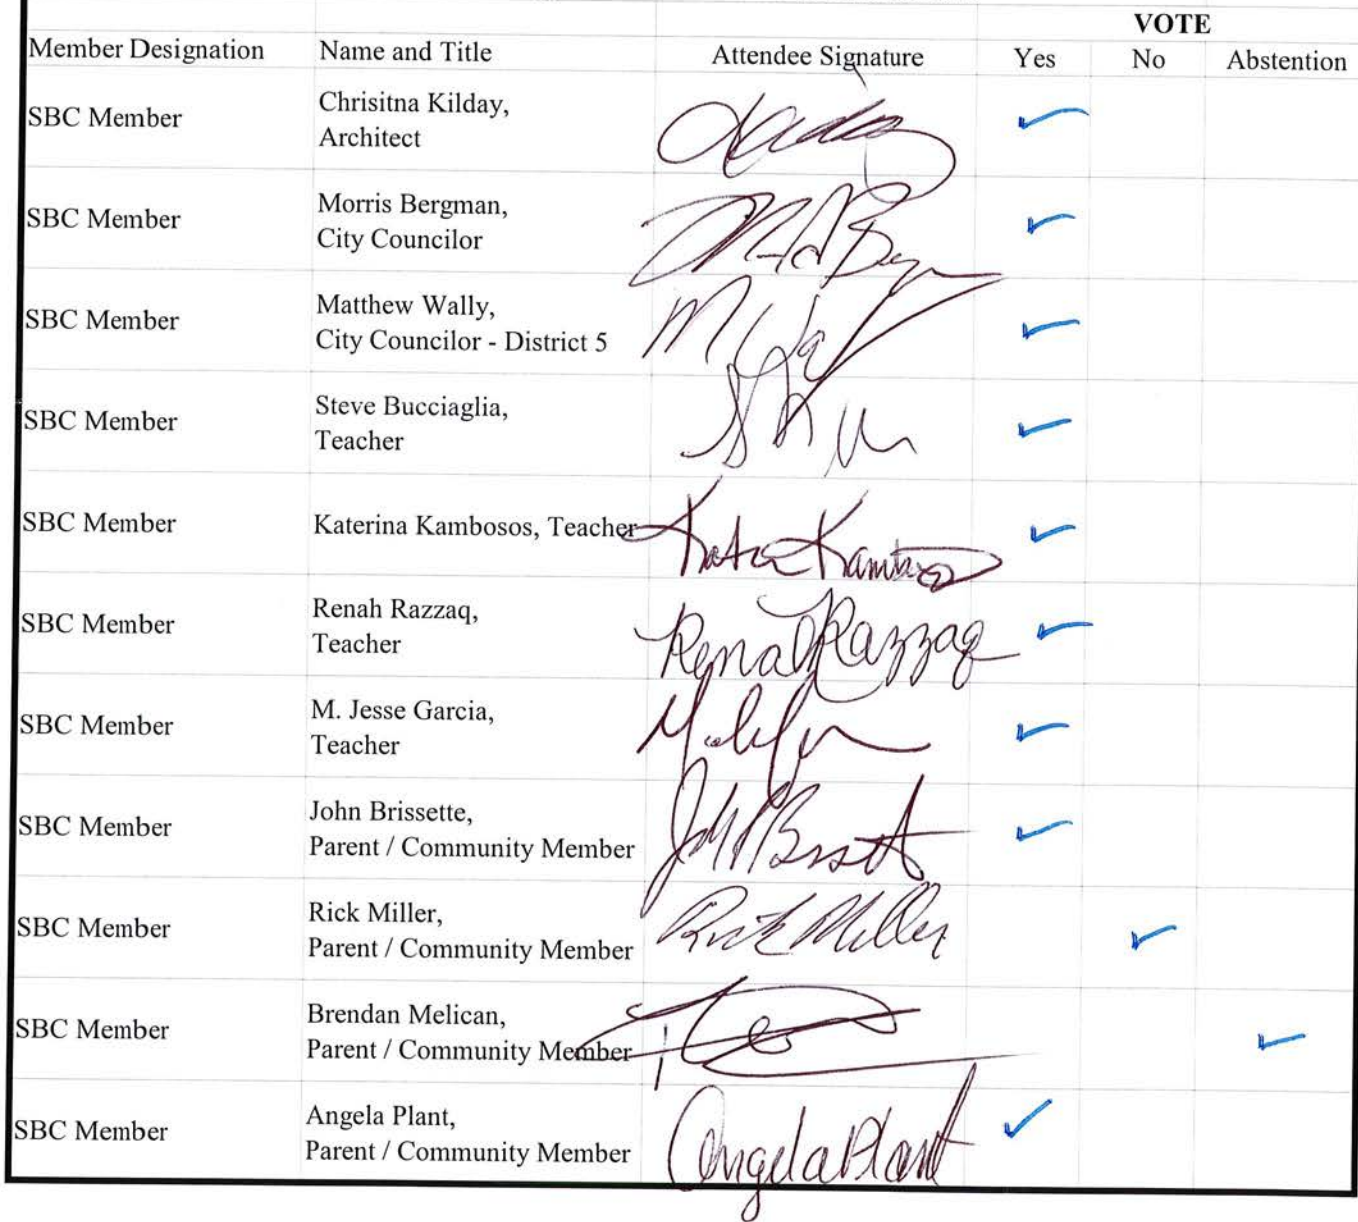 VOTE
Member Designation Name and Title Attendee Signature Yes No Abstention
SBC Member
Chrisitna Kilday,
Architect
SBC Member
Morris Bergman,
City Councilor
SBC Member
Matthew Wally,
City Councilor - District 5
SBC Member
Steve Bucciaglia,
Teacher
SBC Member
Katerina Kambosos, Teacher
SBC Member
Renah Razzaq,
Teacher
Renah Razzaq
SBC Member
M. Jesse Garcia,
Teacher
SBC Member
John Brissette,
Parent / Community Member
SBC Member
Rick Miller,
Parent / Community Member
Rick Miller
SBC Member
Brendan Melican,
Parent / Community Member
SBC Member
Angela Plant,
Parent / Community Member
Angela Plant